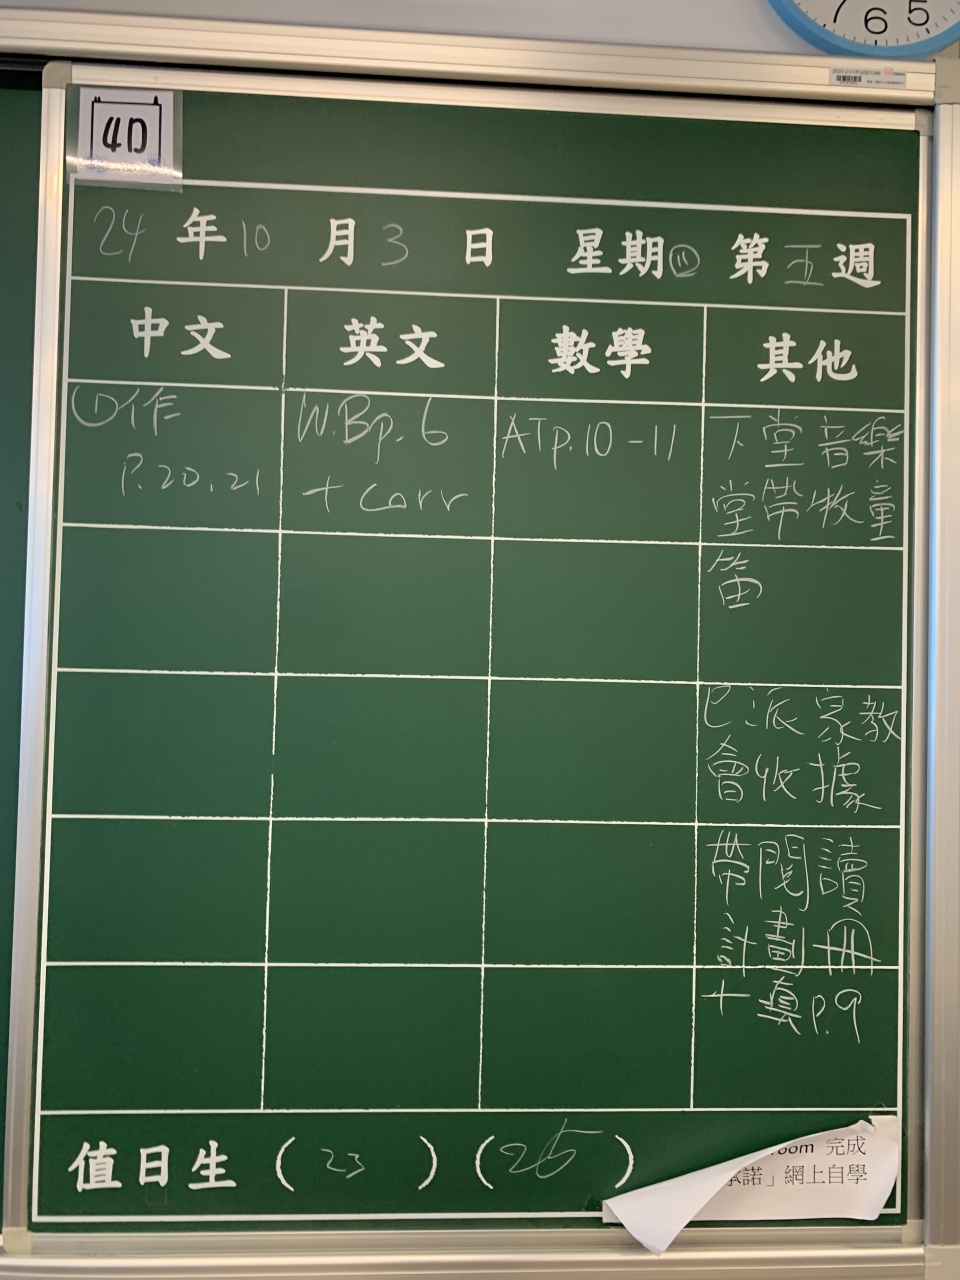 7 6 5
4D
24 年 10 月 3 日 星期四 第 五 週
中文 英文 數學 其他
①作
P.20,21
W.Bp.6
+ Corr
ATp.10-11
下堂音樂
堂帶牧童
笛
已派家教
會收據
帶閱讀
計劃冊
+ 填 p.9
值日生 ( 23 ) ( 26 )
room 完成
承諾」網上自學